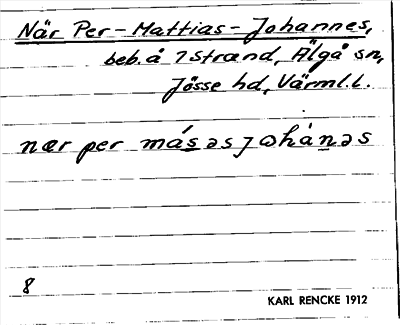 När Per-Mattias-Johannes,
beb. å 7 Strand, Älgå sn,
Jösse hd, Värml.l.
nær per másəsjωhànəs
8
KARL RENCKE 1912